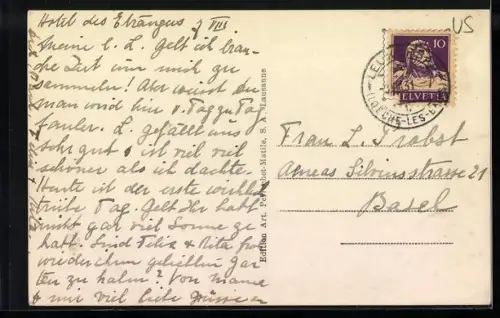 Hotel des Etrangers 7 VIII
Meine l. L. Gelt ich brau-
che Zeit um mich zu
sammeln! Aber weist Du
man wird hier v. Tag zu Tag
fauler. L. gefällt uns
sehr gut & ist viel viel
schöner als ich dachte.
Heute ist der erste wirklich
trübe Tag. Gelt Ihr habt
nicht gar viel Sonne ge
habt. Sind Felix & Rita froh
wieder ihren geliebten Gar
ten zu haben? Von Mama
& mir viel liebe Grüsse
Edition Art. Perrochet-Matile, S. A., Lausanne
US
10
HELVETIA
(LOÈCHE-LES-B
Frau L. Probst
Aeneas Silviusstrasse 21
Basel